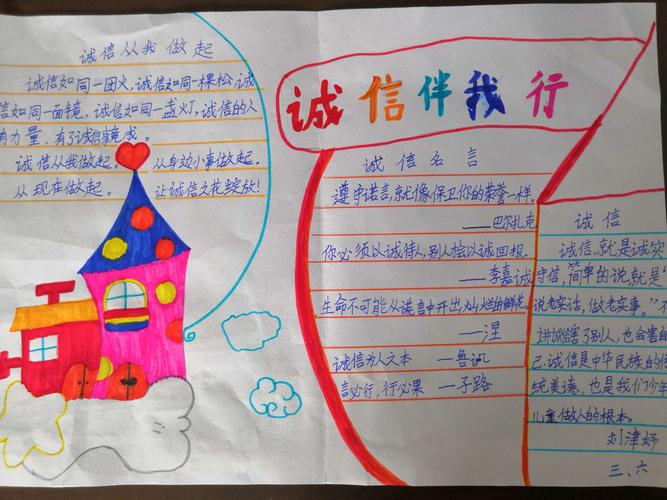 诚信从我做起
诚信如同一团火,诚信如同一棵松,诚
信如同一面镜,诚信如同一盏灯,诚信的人
有力量,有了诚信事竟成。
诚信从我做起。从身边小事做起。
从现在做起。让诚信之花绽放!
诚信伴我行
诚信名言
遵守诺言,就像保卫你的荣誉一样。
——巴尔扎克
你必须以诚待人,别人会以诚回报。
——李嘉诚
生命不可能从谎言中开出灿烂的鲜花。
——涅
诚信为人之本 —鲁讯
言必行,行必果 —子路
诚信
诚信,就是诚实
守信,简单的说,就是"
说老实话,做老实事。"不
讲诚信害了别人,也会害自
己.诚信是中华民族的传
统美德,也是我们少年
儿童做人的根本。
刘津妤
三、六